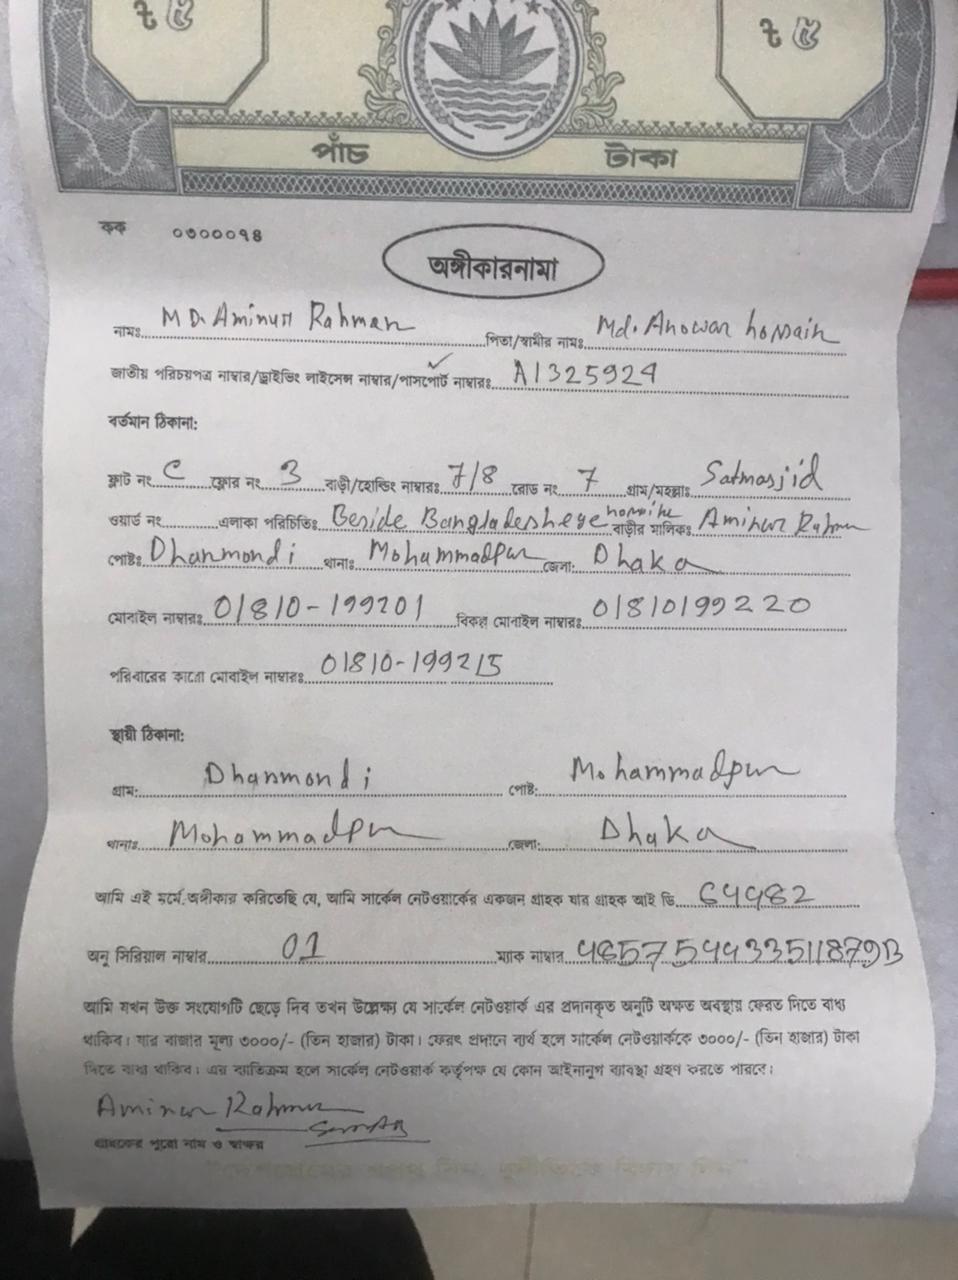 ৳ ৫ ৳ ৫
পাঁচ টাকা
কক ০৩০০০৭৪
অঙ্গীকারনামা
নামঃ MD. Aminur Rahman পিতা/স্বামীর নামঃ Md. Anowar hossain
জাতীয় পরিচয়পত্র নাম্বার/ড্রাইভিং লাইসেন্স নাম্বার/পাসপোর্ট নাম্বারঃ A1325924
বর্তমান ঠিকানা:
ফ্লাট নং C ফ্লোর নং 3 বাড়ী/হোল্ডিং নাম্বারঃ 7/8 রোড নং 7 গ্রাম/মহল্লাঃ Satmasjid
ওয়ার্ড নং এলাকা পরিচিতিঃ Beside Bangladesheye বাড়ীর মালিকঃ Aminur Rahman
পোষ্টঃ Dhanmondi থানাঃ Mohammadpur জেলা: Dhaka
মোবাইল নাম্বারঃ 01810-199201 বিকল্প মোবাইল নাম্বারঃ 01810199220
পরিবারের কারো মোবাইল নাম্বারঃ 01810-199215
স্থায়ী ঠিকানা:
গ্রাম: Dhanmondi পোষ্ট: Mohammadpur
থানাঃ Mohammadpur জেলা: Dhaka
আমি এই মর্মে অঙ্গীকার করিতেছি যে, আমি সার্কেল নেটওয়ার্কের একজন গ্রাহক যার গ্রাহক আই ডি 64982
অনু সিরিয়াল নাম্বার 01 ম্যাক নাম্বার 485754433511879B
আমি যখন উক্ত সংযোগটি ছেড়ে দিব তখন উল্লেক্ষা যে সার্কেল নেটওয়ার্ক এর প্রদানকৃত অনুটি অক্ষত অবস্থায় ফেরত দিতে বাধ্য
থাকিব। যার বাজার মূল্য ৩০০০/- (তিন হাজার) টাকা। ফেরৎ প্রদানে ব্যর্থ হলে সার্কেল নেটওয়ার্ককে ৩০০০/- (তিন হাজার) টাকা
দিতে বাধ্য থাকিব। এর ব্যতিক্রম হলে সার্কেল নেটওয়ার্ক কর্তৃপক্ষ যে কোন আইনানুগ ব্যাবস্থা গ্রহণ করতে পারবে।
Aminur Rahman
গ্রাহকের পুরো নাম ও স্বাক্ষর